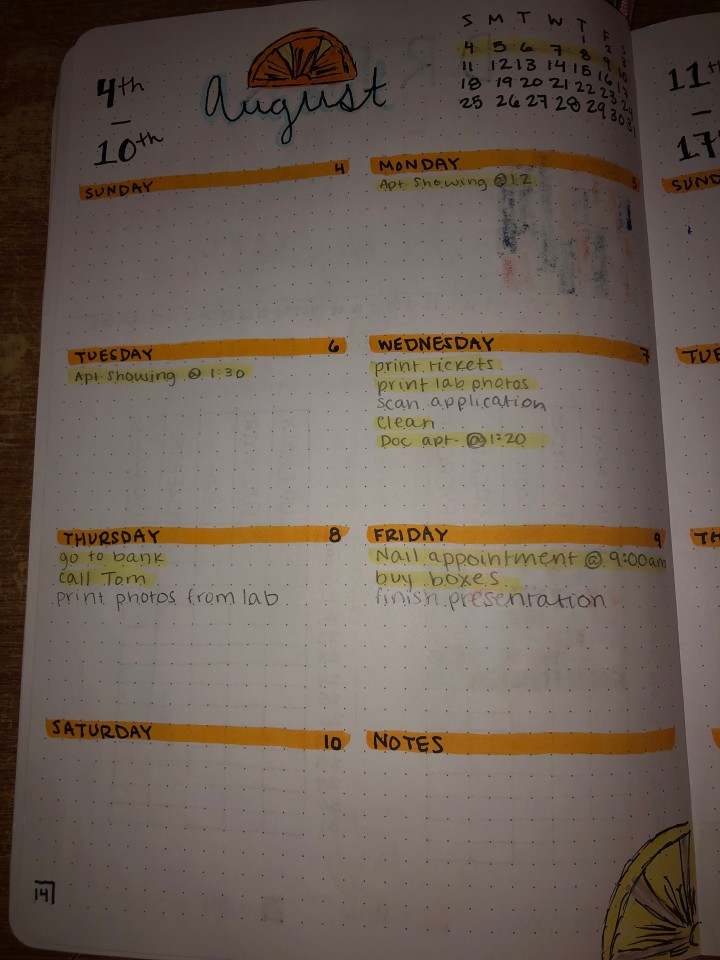 4th
–
10th
August
S M T W T F S
1 2 3
4 5 6 7 8 9 10
11 12 13 14 15 16 17
18 19 20 21 22 23 24
25 26 27 28 29 30 31
SUNDAY 4
MONDAY 5
Apt Showing @ 12
TUESDAY 6
Apt showing @ 1:30
WEDNESDAY 7
print tickets
print lab photos
scan application
clean
Doc apt- @ 1:20
THURSDAY 8
go to bank
call Tom
print photos from lab
FRIDAY 9
Nail appointment @ 9:00am
buy boxes
finish presentation
SATURDAY 10
NOTES
14
11th
–
17
SUND
TUE
TH